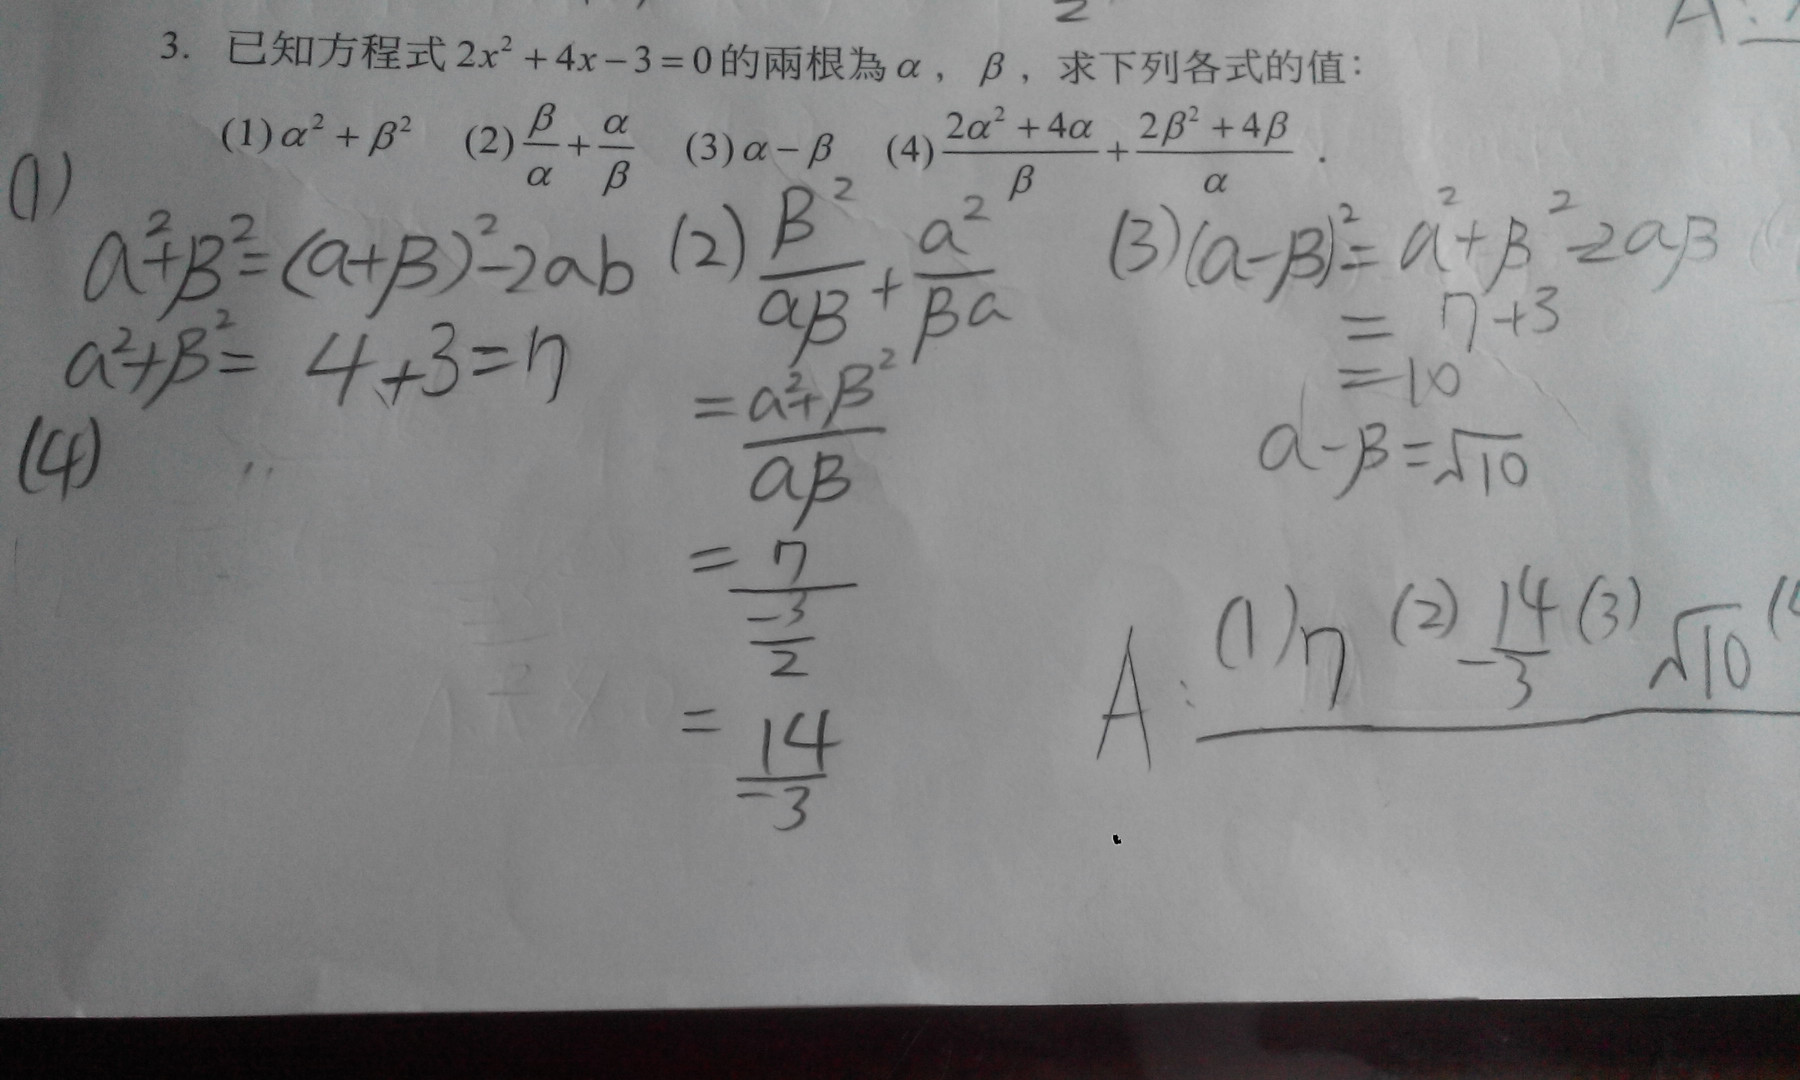 3. 已知方程式 2x² + 4x − 3 = 0 的兩根為 α , β , 求下列各式的值:
(1) α² + β² (2) β/α + α/β (3) α − β (4) (2α² + 4α)/β + (2β² + 4β)/α .
(1)
a²+β²=(a+β)²-2ab
a²+β²= 4+3=7
(2) β²/aβ + a²/βa
= a²+β²/aβ
= 7/(-3/2)
= 14/-3
(3) (a-β)²= a²+β²-2aβ
= 7+3
=10
a-β=√10
(4)
A: (1) 7 (2) -14/3 (3) √10